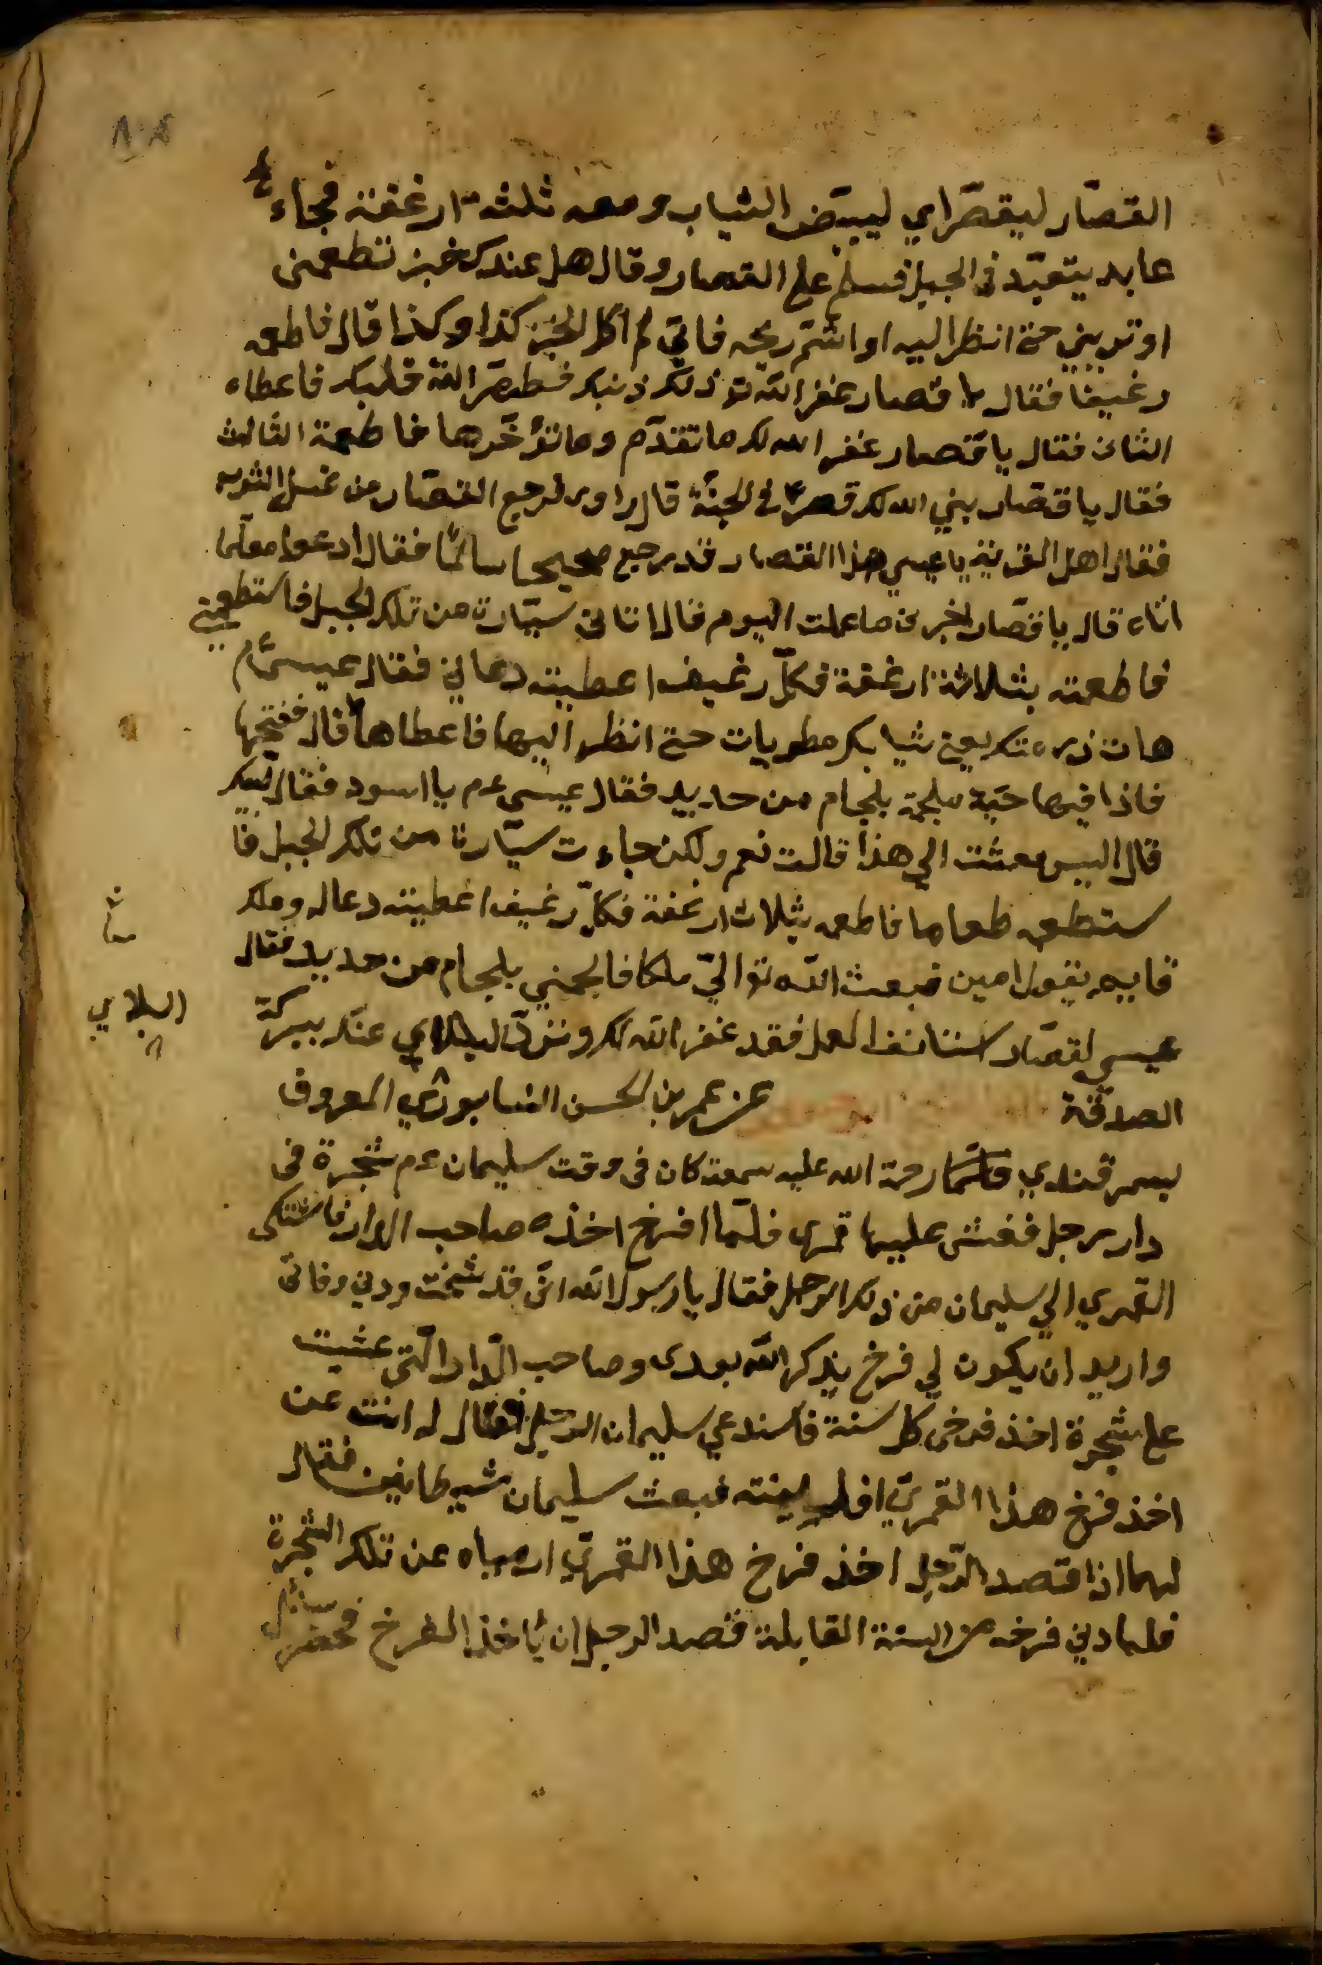 القصّار ليقصّر اي ليبيّض الثياب ومعه ثلثة ارغفة فجاءه
عابد يتعبّد في الجبل فسلم على القصار وقال هل عندك خبز تطعمني
او تريني حتى انظر اليه او اشمّ ريحه فانّي لم اكل الخبز كذا وكذا قال فاطعمه
رغيفا فقال يا قصار غفر الله تو لك ذنبك وطهّر الله قلبك فاعطاه
الثاني فقال يا قصار غفر الله لك ما تقدّم وما تؤخّرها فاطعمه الثالث
فقال يا قصّار بني الله لك قصرا في الجنّة قال راوي فرجع القصّار من غسل الثوب
فقال اهل القرية يا عيسي هذا القصار قد رجع صحيحا سالمًا فقال ادعوا فلما
اتاه قال يا قصّار اخبرني ما عملت اليوم قال اتاني سيّارة من تلك الجبل فاستطعمني
فاطعمته بثلاثة ارغفة فكلّ رغيف اعطيته دعا لي فقال عيسى ع م
هات رزمتك يعني ثيابك مطويات حتى انظر اليها فاعطاها قال ففتحها
فاذا فيها حيّة ملجمة بلجام من حديد فقال عيسى ع م يا اسود فقال لبيك
قال اليس بعثت الي هذا قالت نعم ولكن جاءت سيّارة من تلك الجبل فا
ستطعمه طعاما فاطعمه بثلاث ارغفة فكلّ رغيف اعطيته دعا له وملك
قايم يقول امين فبعث الله تو اليّ ملكا فالجمني بلجام من حديد فقال
عيسى لقصّار استأنف العمل فقد غفر الله لك وتردّ البلاي عنك ببركة
البلاي
الصدقة عن عمر بن الحسن النيسابوري المعروف
بسمرقندي رحمة الله عليه سمعت كان في وقت سليمان ع م شجرة في
دار رجل فعشّ عليها قمري فلمّا افرخ اخذه صاحب الدار فاشتكى
القمري الي سليمان من ذلك الرجل فقال يا رسول الله انّي قد شخت ودني وفاتي
واريد ان يكون لي فرخ يذكر الله بعدي وصاحب الدّار الّتي عشيت
على شجرة اخذ فرخي كل سنة فاستدعي سليمان الرجل فقال له انت عن
اخذ فرخ هذا القمريّ فبعث سليمان شيطانين فقال
لهما اذا قصد الرّجل اخذ فرخ هذا القمريّ ارمياه عن تلك الشجرة
فلما دني فرخه من السنة القابلة قصد الرجل ان يأخذ الفرخ فحضر سائل